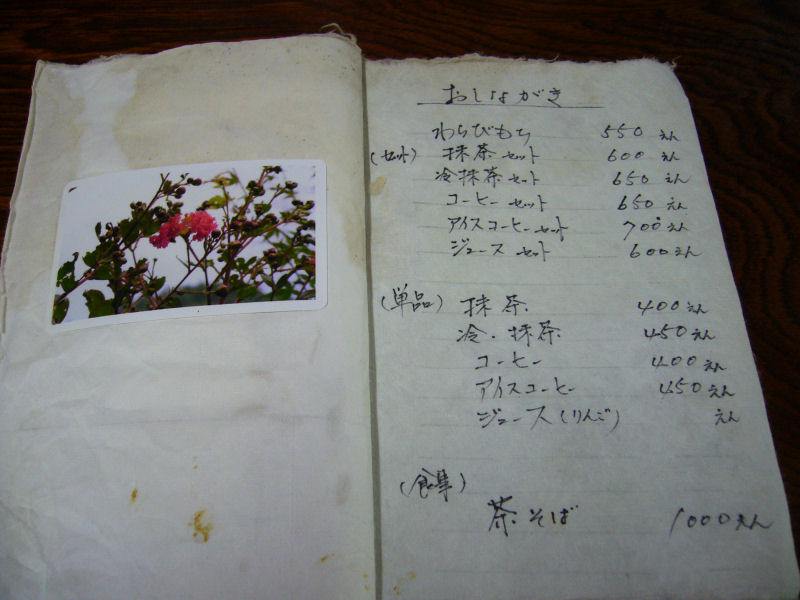 おしながき
わらびもち 550 えん
(セット) 抹茶セット 600 えん
冷抹茶セット 650 えん
コーヒーセット 650 えん
アイスコーヒーセット 700 えん
ジュースセット 600 えん
(単品) 抹茶 400 えん
冷・抹茶 450 えん
コーヒー 400 えん
アイスコーヒー 450 えん
ジュース(りんご) えん
(食事)
茶そば 1000 えん